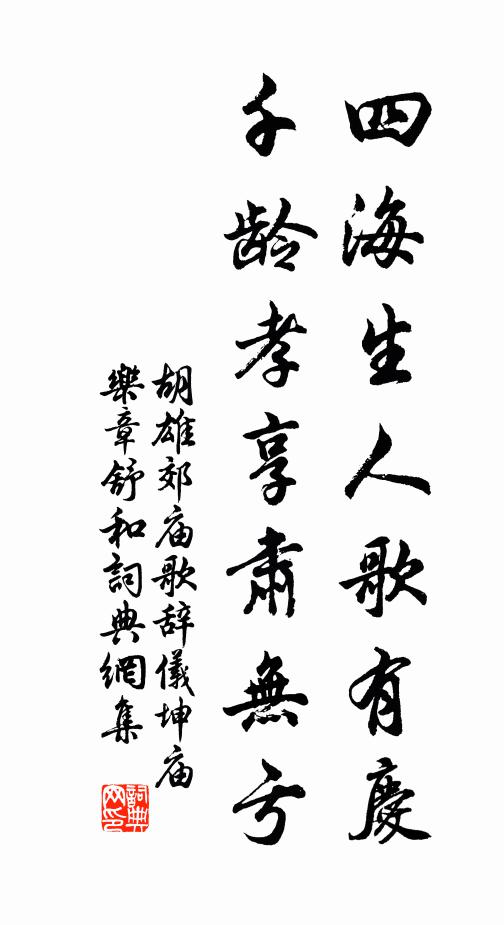 四海生人歌有慶
千龄孝享肅無亏
胡雄郊庙歌辞儀坤庙
樂章舒和詞典網集
詞典网印